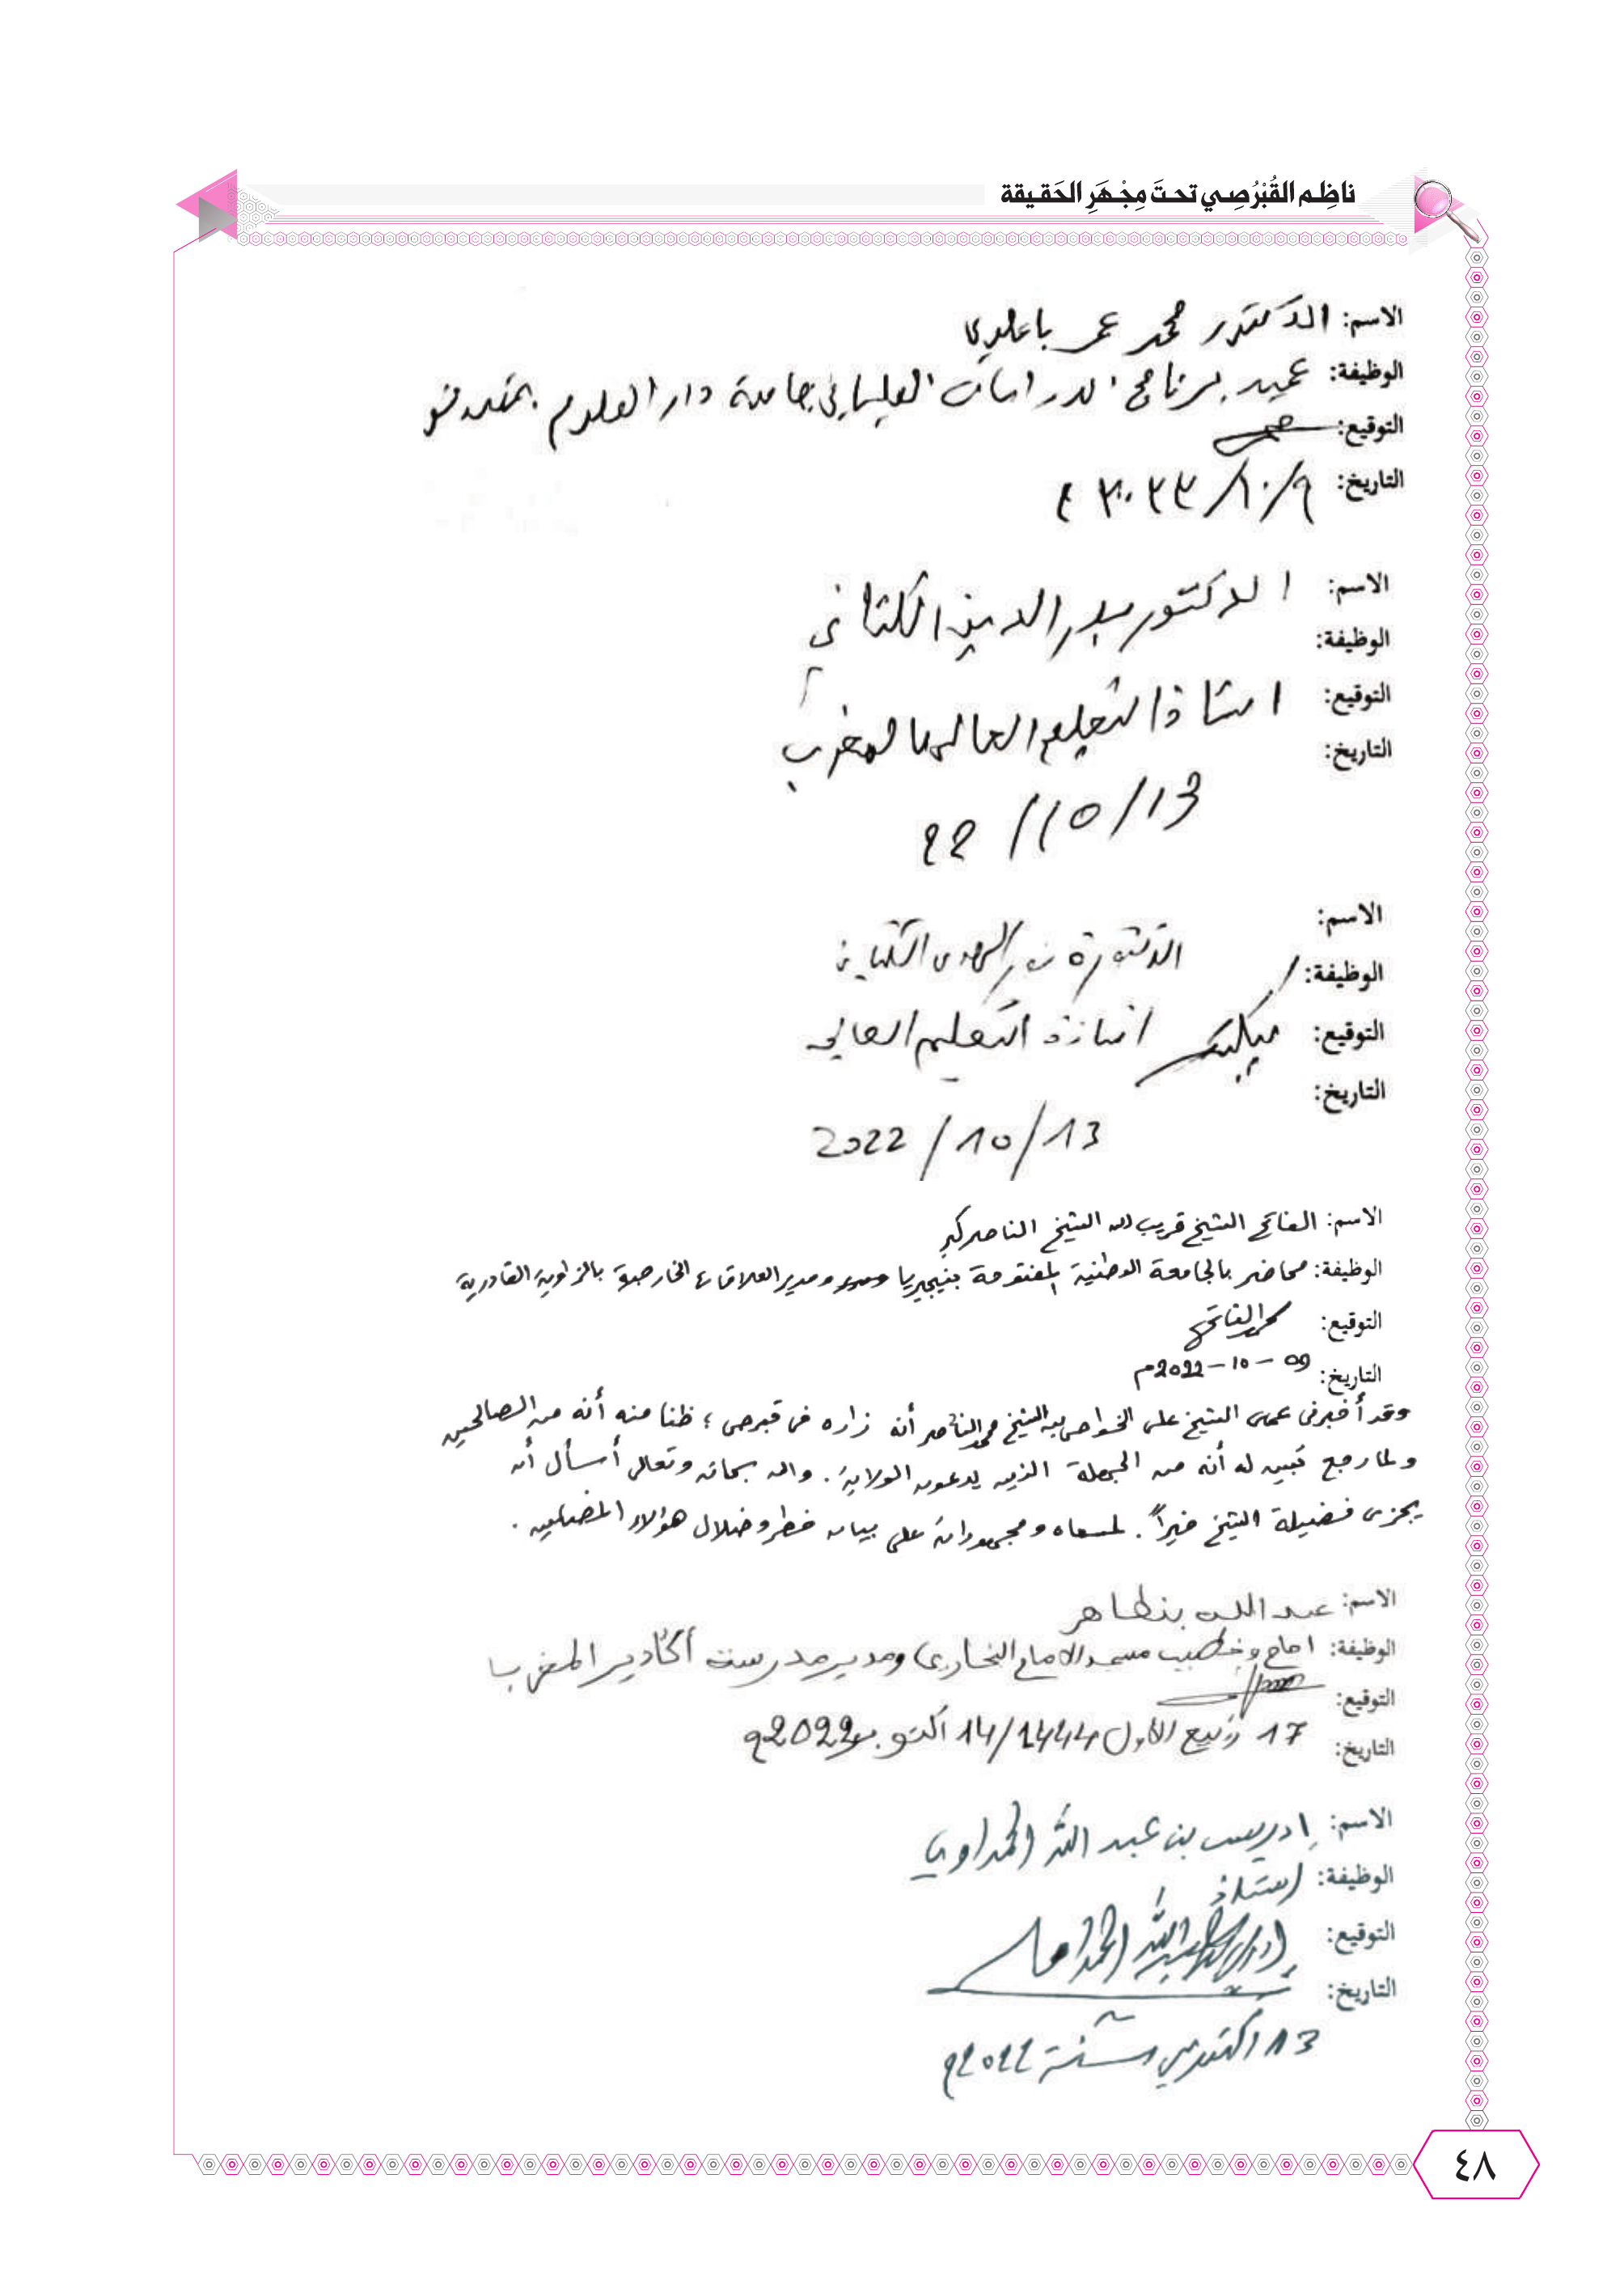 ناظِم القُبْرُصِي تحتَ مِجْهَرِ الحَقيقة
الاسم: الدكتور محمد عمر باعلوي
الوظيفة: عميد برنامج الدراسات العليا في جامعة دار العلوم بمقديشو
التوقيع:
التاريخ:
الاسم: الدكتور بدر الدين الكتاني
الوظيفة:
التوقيع: استاذ التعليم العالي بالمغرب
التاريخ:
13/10/22
الاسم:
الدكتورة نور الهدى الكتاني
الوظيفة:
التوقيع: استاذة التعليم العالي
التاريخ:
13/10/2022
الاسم: الفاتح الشيخ قريب الله الشيخ الناصر كبر
الوظيفة: محاضر بالجامعة الوطنية المفتوحة بنيجيريا ومدير العلاقات الخارجية بالزاوية القادرية
التوقيع: محمد الفاتح
التاريخ: 09-10-2022م
وقد أخبرني عمي الشيخ علي الخواص بن الشيخ محمد الناصر أنه زاره في قبرص؛ ظنا منه أنه من الصالحين
ولما رجع تبين له أنه من الجهلة الذين يدعون الولاية. والله سبحانه وتعالى أسأل أن
يجزي فضيلة الشيخ خيراً. لمسعاه ومجهوداته على بيان خطر وضلال هؤلاء المضلين.
الاسم: عبد الله بنطاهر
الوظيفة: امام وخطيب مسجد الامام البخاري ومدير مدرسته أكادير المغرب
التوقيع:
التاريخ: 17 ربيع الأول 1444/14 اكتوبر 2022م
الاسم: إدريس بن عبد الله الحمداوي
الوظيفة: استاذ
التوقيع:
التاريخ:
13 اكتوبر سنة 2022م
٤٨